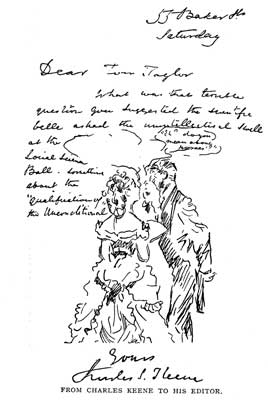 55 Baker St
Saturday
Dear Tom Taylor
What was that terrible
question you suggested the scientific
belle asked the unintellectual swell
at the
Social Science
Ball. Something
about the
"qualification of
the Unconditional
Yours
Charles S. Keene
FROM CHARLES KEENE TO HIS EDITOR.